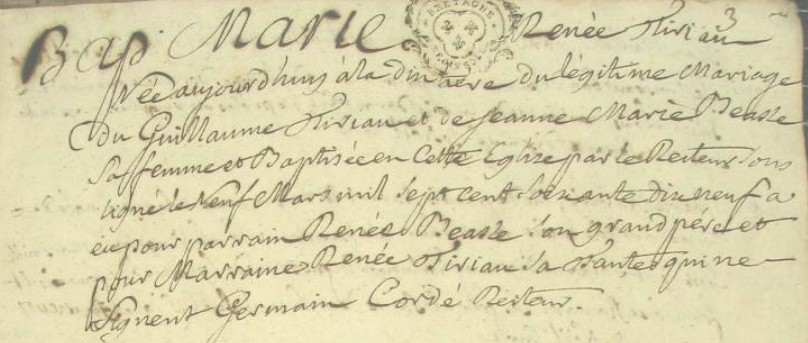 Bap. Marie Renée Tiriau
Née aujourd'huy à la din du legitime Mariage
du Guillaume Tiriau et de Jeanne Marie Beasle
Sa femme et Baptisée en Cette Eglise par le Recteur Sous
signé le Neuf Mars mil Sept cent Soixante dix neuf a
eu pour parrain Renée Beasle Son grand père et
pour Marraine Renée Tiriau Sa Tante qui ne
Signent Germain Cordé Recteur.
BRETAGNE